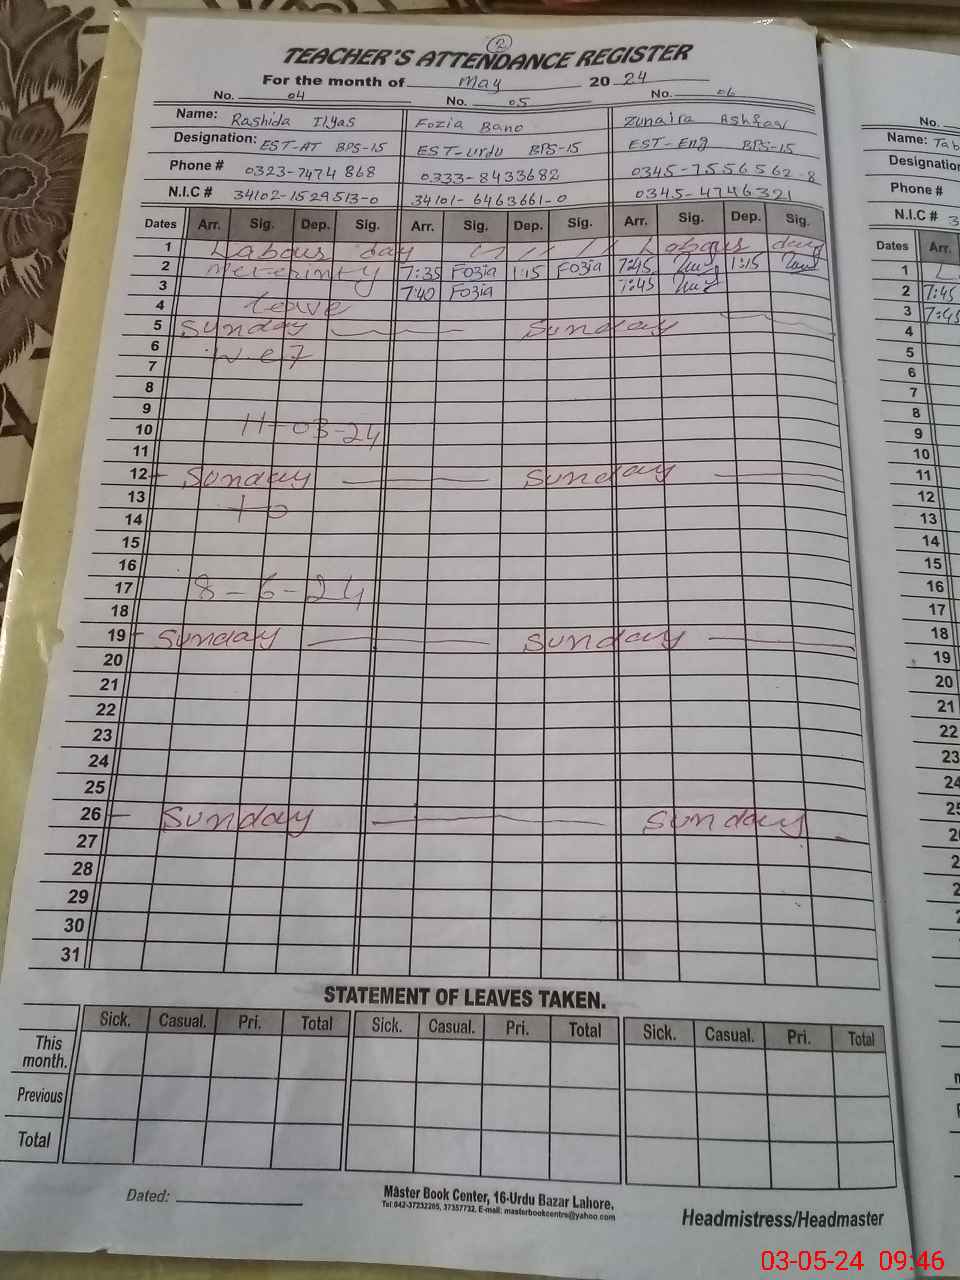 2
TEACHER'S ATTENDANCE REGISTER
For the month of May 2024
No. 04 No. 05 No. 06
Name: Rashida Ilyas Fozia Bano Zunaira Ashfaq
Designation: EST-AT BPS-15 EST-Urdu BPS-15 EST-Eng BPS-15
Phone # 0323-7474868 0333-8433682 0345-7556562-8
N.I.C # 34102-1529513-0 34101-6463661-0 0345-4746321
Dates Arr. Sig. Dep. Sig. Arr. Sig. Dep. Sig. Arr. Sig. Dep. Sig.
1 Labour day Labour day
2 Meternity 7:35 Fozia 1:15 Fozia 7:45 1:15
3 7:40 Fozia 7:45
4 leave
5 Sunday Sunday
6 w e f
7
8
9
10 11-03-24
11
12 Sunday Sunday
13 to
14
15
16
17 8-6-24
18
19 Sunday Sunday
20
21
22
23
24
25
26 Sunday Sunday
27
28
29
30
31
STATEMENT OF LEAVES TAKEN.
Sick. Casual. Pri. Total Sick. Casual. Pri. Total Sick. Casual. Pri. Total
This month.
Previous
Total
Dated:
Master Book Center, 16-Urdu Bazar Lahore.
Tel:042-37232205, 37357732, E-mail: masterbookcentre@yahoo.com
Headmistress/Headmaster
No.
Name: Tab
Designation
Phone #
N.I.C # 3
Dates Arr.
1 L
2 7:45
3 7:45
4
5
6
7
8
9
10
11
12
13
14
15
16
17
18
19
20
21
22
23
24
25
03-05-24 09:46